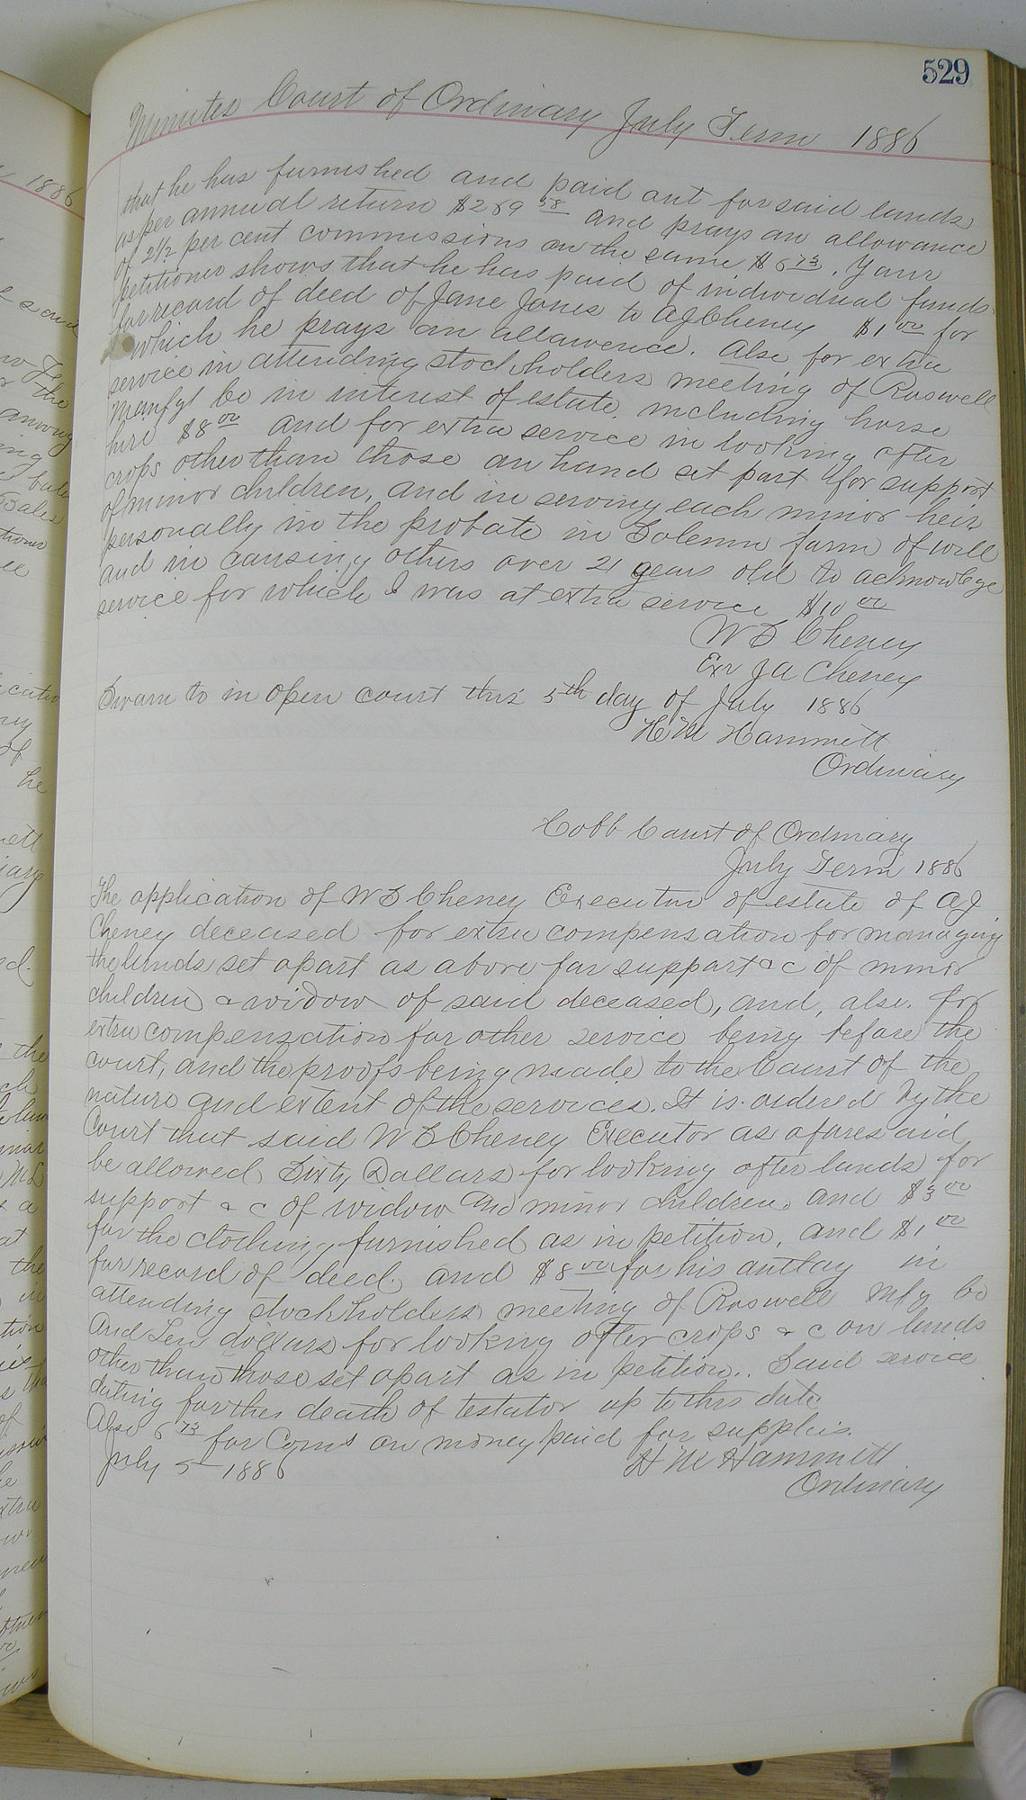 529
Minutes Court of Ordinary July Term 1886
that he has furnished and paid out for said lands
as per annual return $269 58 and prays an allowance
of 2 1/2 per cent commissions on the same $6 73. Your
petitioner shows that he has paid of individual funds
for record of deed of Jane Jones to AJ Cheney $1 00 for
which he prays an allowence. Also for extra
service in attending stockholders meeting of Roswell
Manfgt Co in interest of estate including horse
hire $8 00 and for extra service in looking after
crops other than those on hand set part for support
of minor children, and in serving each minor heir
personally in the probate in Solemn form of will
and in causing others over 21 years old to acknowlege
service for which I was at extra service $10 00
W S Cheney
Exr JA Cheney
Sworn to in open court this 5th day of July 1886
H M Hammett
Ordinary
Cobb Court of Ordinary
July Term 1886
The application of W S Cheney Executor of estate of AJ
Cheney deceased for extra compensation for managing
the lands set apart as above for support &c of minor
children & widow of said deceased, and, also for
extra compensation for other service being before the
court, and the proofs being made to the Court of the
nature and extent of the services. It is ordered by the
Court that said W S Cheney Executor as aforesaid,
be allowed Sixty Dollars for looking after lands for
support &c of widow and minor children. and $3 00
for the clothing furnished as in petition, and $1 00
for record of deed. and $8 00 for his outlay in
attending stockholders meeting of Roswell Mfg Co
and Ten dollars for looking after crops &c on lands
other than those set apart as in petition. Said service
dating for the death of testator up to this date.
Also 6 73 for Coms on money paid for supplies.
July 5 1886
H M Hammett
Ordinary